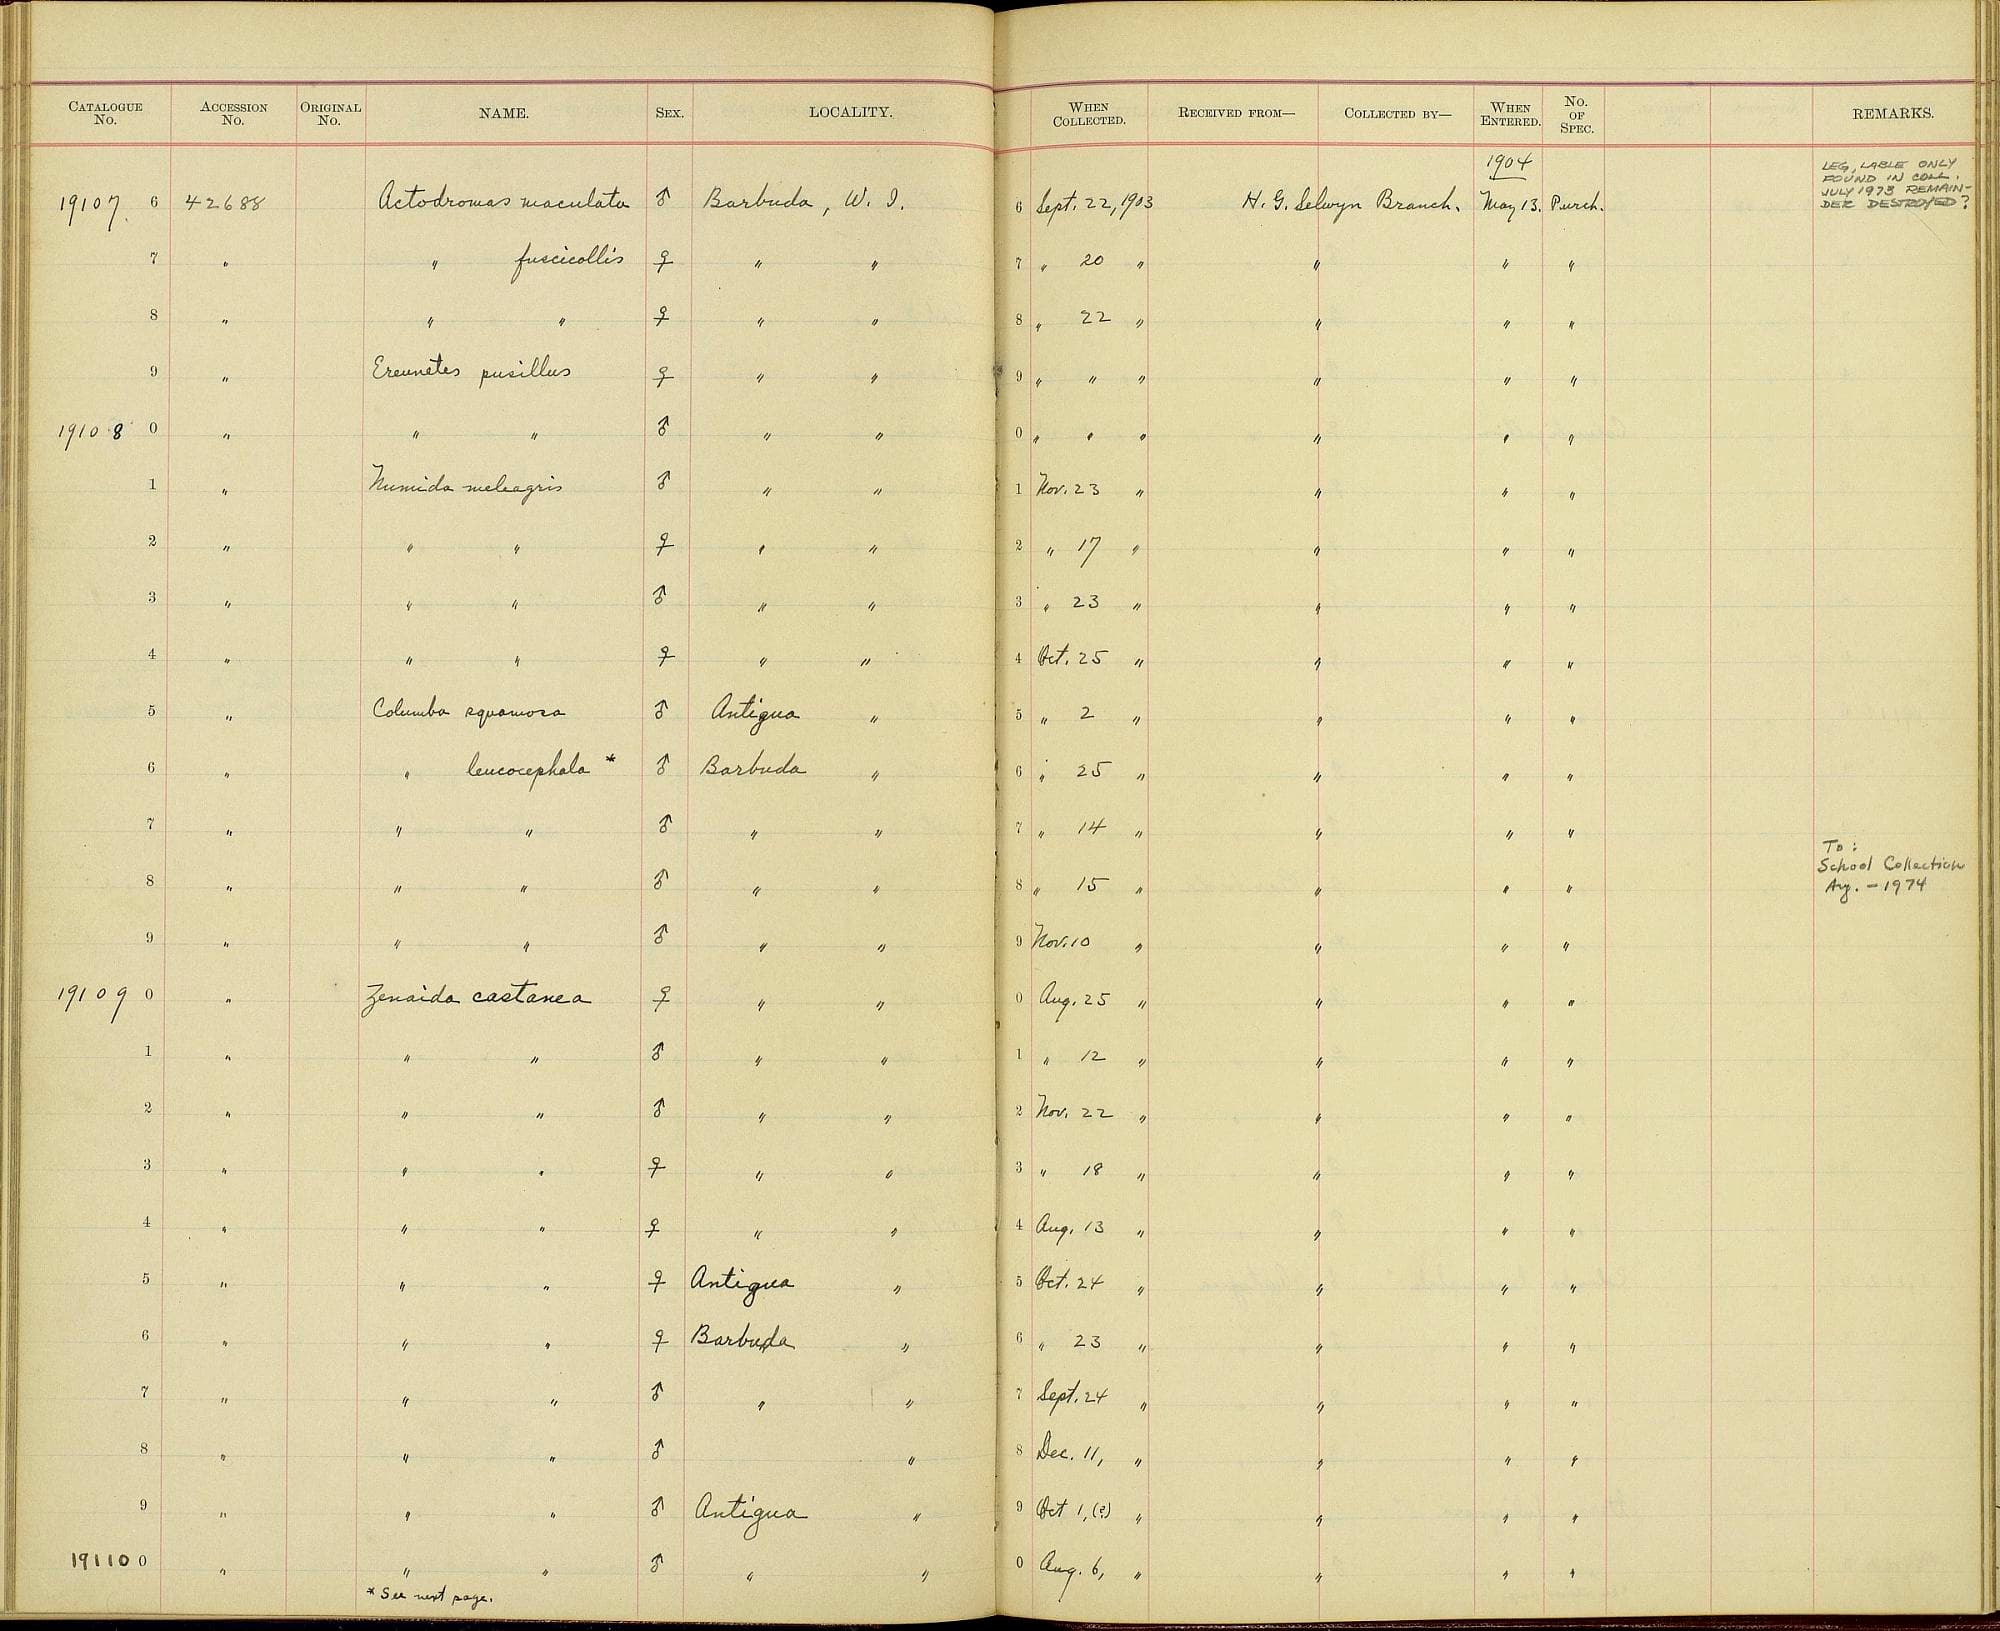 CATALOGUE No. ACCESSION No. ORIGINAL No. NAME. SEX. LOCALITY. WHEN COLLECTED. RECEIVED FROM— COLLECTED BY— WHEN ENTERED. No. OF SPEC. REMARKS.
1904
LEG, LABLE ONLY
FOUND IN COLL.
JULY 1973 REMAIN-
DER DESTROYED?
19107 6 42688 Actodromas maculata ♂ Barbuda, W. I. 6 Sept. 22, 1903 H. G. Selwyn Branch. May 13. Purch.
7 " " fuscicollis ♀ " " 7 " 20 " " " "
8 " " " ♀ " " 8 " 22 " " " "
9 " Ereunetes pusillus ♀ " " 9 " " " " " "
19108 0 " " " ♂ " " 0 " " " " " "
1 " Numida meleagris ♂ " " 1 Nov. 23 " " " "
2 " " " ♀ " " 2 " 17 " " " "
3 " " " ♂ " " 3 " 23 " " " "
4 " " " ♀ " " 4 Oct. 25 " " " "
5 " Columba squamosa ♂ Antigua " 5 " 2 " " " "
6 " " leucocephala * ♂ Barbuda " 6 " 25 " " " "
7 " " " ♂ " " 7 " 14 " " " "
To:
School Collection
Aug. - 1974
8 " " " ♂ " " 8 " 15 " " " "
9 " " " ♂ " " 9 Nov. 10 " " " "
19109 0 " Zenaida castanea ♀ " " 0 Aug. 25 " " " "
1 " " " ♂ " " 1 " 12 " " " "
2 " " " ♂ " " 2 Nov. 22 " " " "
3 " " " ♀ " " 3 " 18 " " " "
4 " " " ♀ " " 4 Aug. 13 " " " "
5 " " " ♀ Antigua " 5 Oct. 24 " " " "
6 " " " ♀ Barbuda " 6 " 23 " " " "
7 " " " ♂ " " 7 Sept. 24 " " " "
8 " " " ♂ " 8 Dec. 11, " " " "
9 " " " ♂ Antigua " 9 Oct 1, (?) " " " "
19110 0 " " " ♂ " " 0 Aug. 6, " " " "
* See next page.